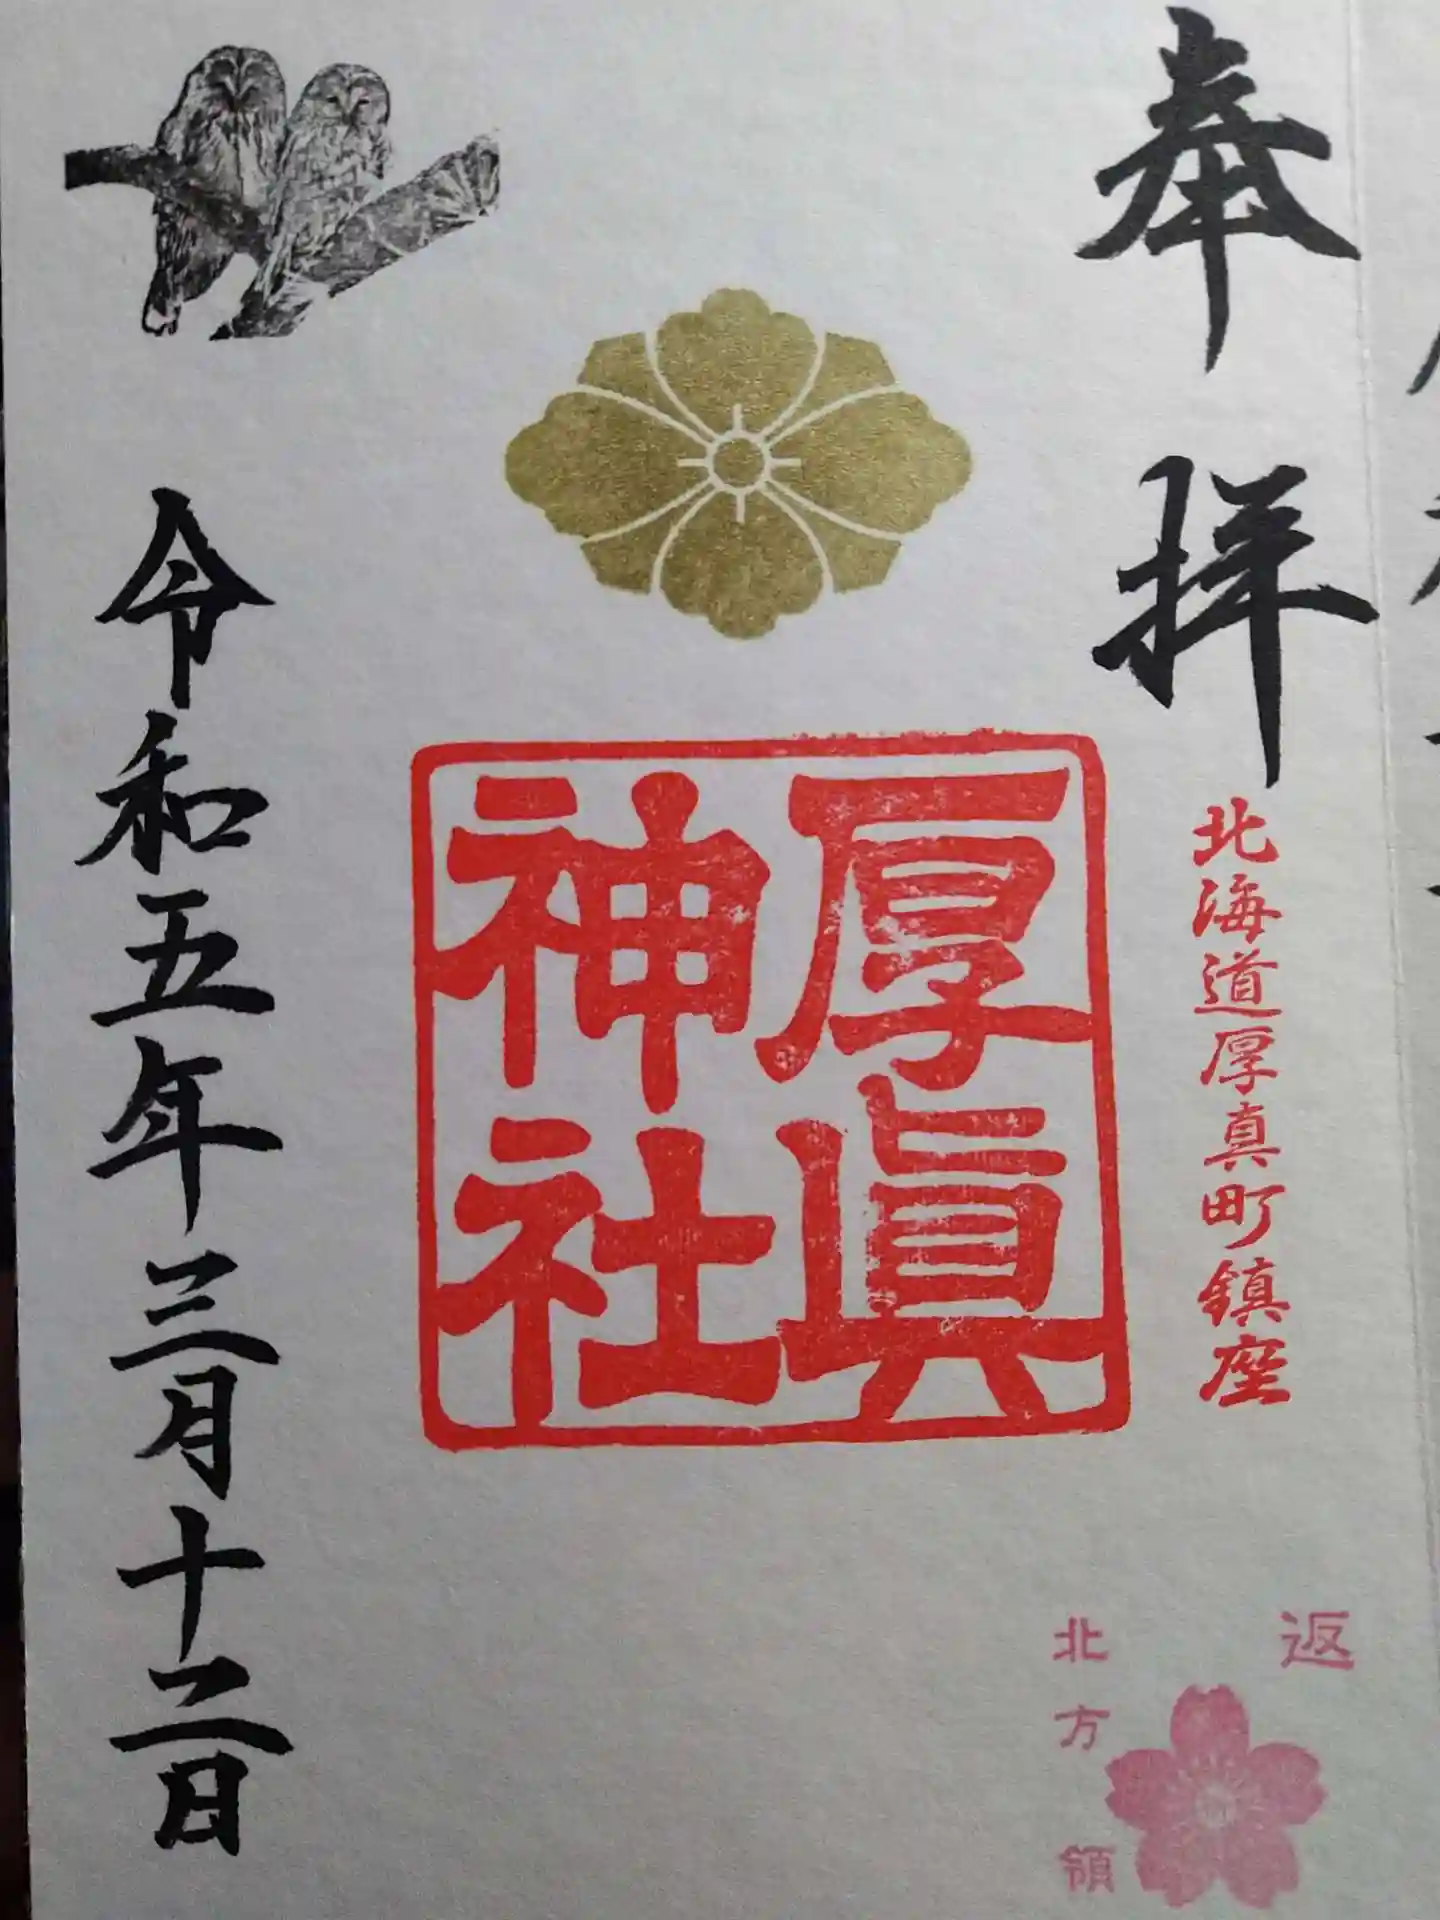 奉拝
北海道厚真町鎮座
厚眞
神社
返
北方領
令和五年三月十二日